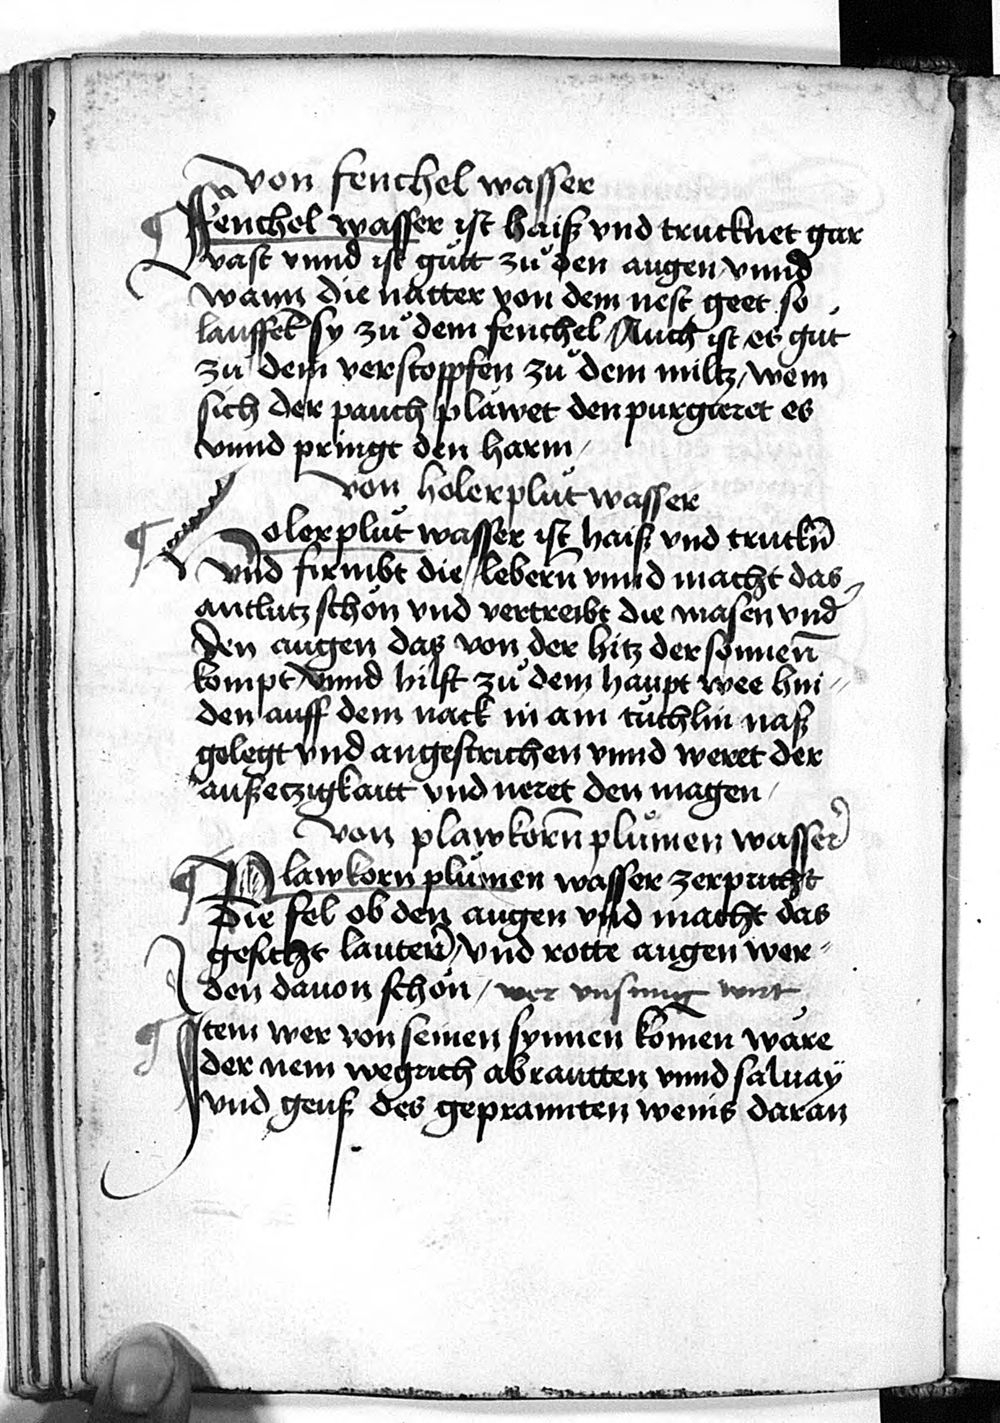 von fenchel wasser
Fenchel wasser ist haiß vnd trucknet gar
vast vnnd ist gůtt zů den augen / vnnd
wann die natter von dem nest geet so
lauffet sy zů dem fenchel / Auch ist es gůt
zů dem verstopffen zů dem miltz / wem
sich der pauch pläwet den purgieret es
vnnd pringt den harm /
von holerplůt wasser
Holerplůt wasser ist haiß vnd truckn̄
vnd firmbt die leberñ vnnd macht das
antlutz schön vnd vertreibt die masen vnd
den augen das von der hitz der sonnen̄
kompt / vnnd hilft zů dem haupt wee hin //
den auff dem nack in am tüchlin naß
gelegt vnd angestrichen vnnd weret der
außetzigkaitt vnd neret den magen /
von plawkorn̄ plůmen wasser
Plawkorn plůmen wasser zerpricht
Die fel ob den augen vnd macht das
gesicht lauter / vnd rotte augen wer //
den dauon schön / wer vnsinnig wirt
Item wer von seinen synnen kom̄en wäre
der nem wegrich abrautten vnnd saluaÿ
vnd geuß des geprannten weins daran